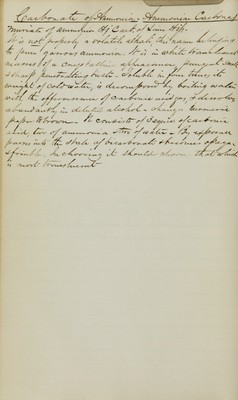 Carbonate of Ammonia - Ammoniae Carbonas
Muriate of ammonia lb1 Carb of Lime lb1ss.
It is not properly a volatile alkali, this name belonging
to pure gaseous ammonia. It is in white translucent
masses of a crystalline appearance, pungent smell
& sharp penetrating taste. Soluble in four times its
weight of cold water, is decomposed by boiling water
with the effervescence of carbonic acid gas, & dissolves
abundantly in diluted alcohol & changes turmeric
paper to brown. It consists of 3 equivs of carbonic
acid two of ammonia & two of water. By exposure
passes into the state of bicarbonate & becomes opaque
& friable. In choosing it should choose that which
is most translucent